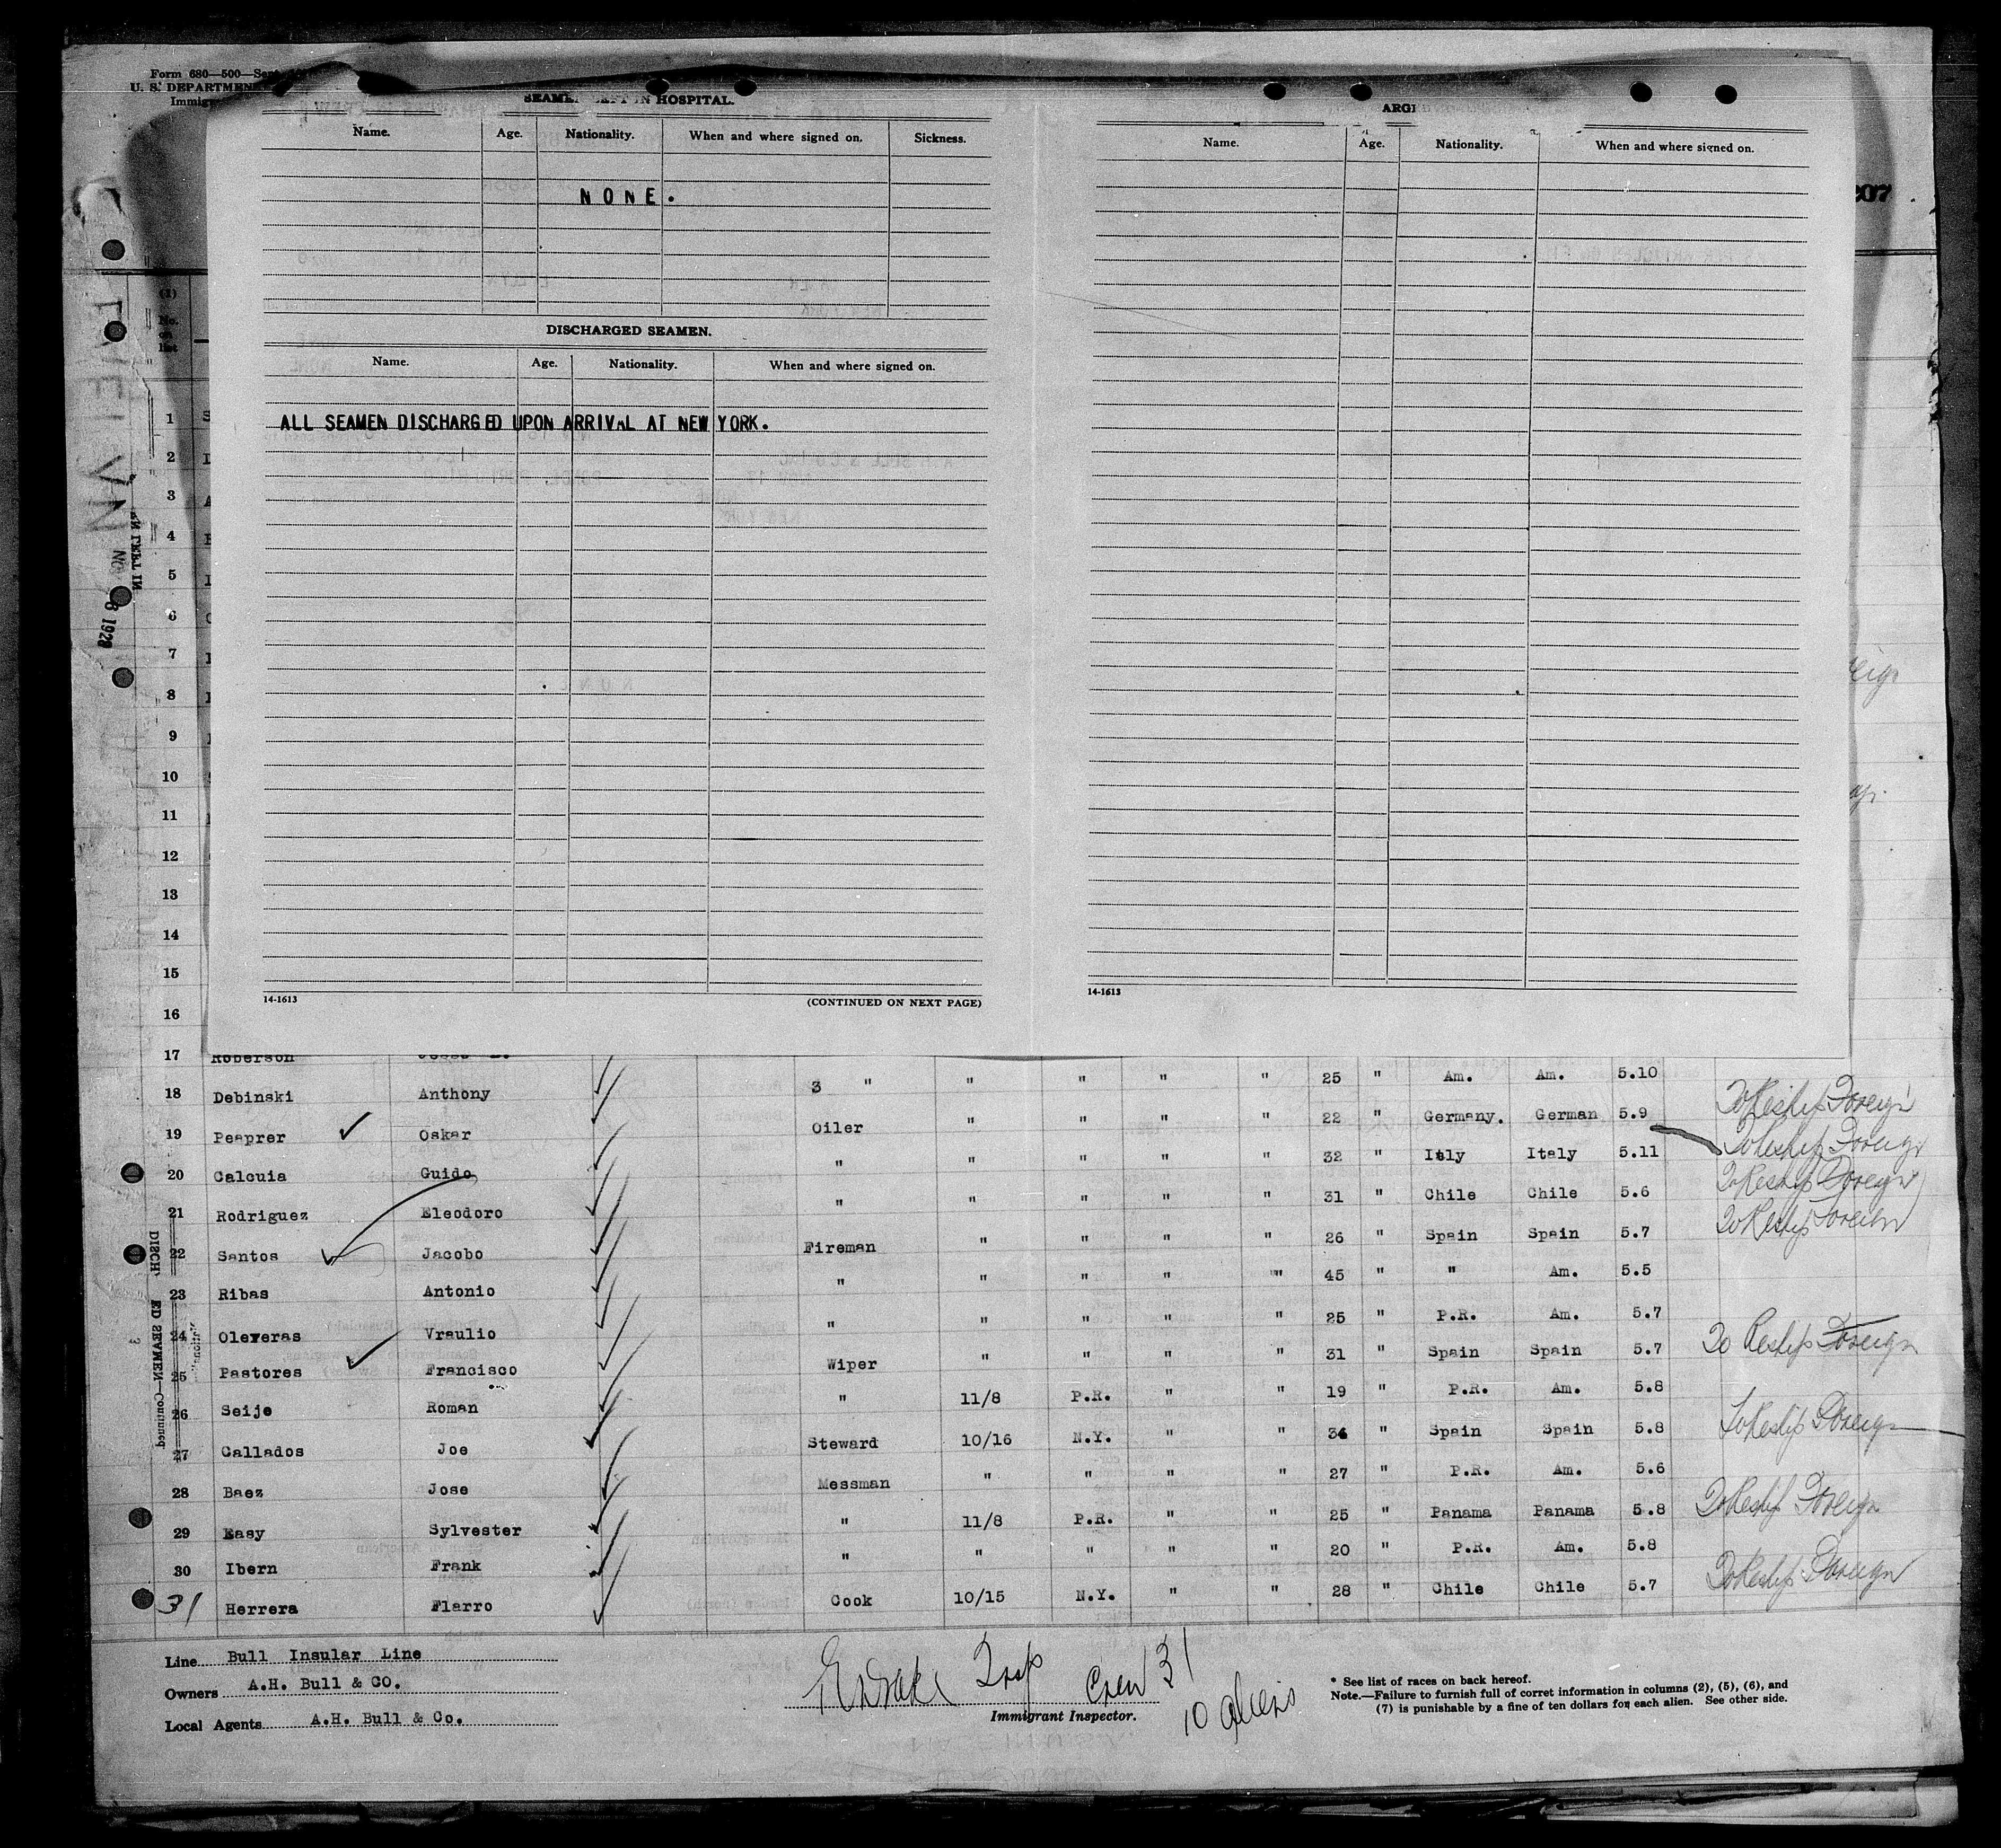 Form 680—500—Sept.
U. S. DEPARTMENT
Immig
SEAMEN LEFT IN HOSPITAL.
Name. Age. Nationality. When and where signed on. Sickness.
NONE.
DISCHARGED SEAMEN.
Name. Age. Nationality. When and where signed on.
ALL SEAMEN DISCHARGED UPON ARRIVAL AT NEW YORK.
14-1613 (CONTINUED ON NEXT PAGE)
ARGI
Name. Age. Nationality. When and where signed on.
14-1613
207
(1)
No.
on
list
1
2
3
4
5
6
7
8
9
10
11
12
13
14
15
16
17 Roberson
18 Debinski Anthony 3 " " " " " 25 " Am. Am. 5.10
19 Peaprer Oskar Oiler " " " " 22 " Germany. German 5.9 To Reship Foreign
20 Calcuia Guido " " " " " 32 " Itly Italy 5.11 To Reship Foreign
21 Rodriguez Eleodoro " " " " " 31 " Chile Chile 5.6 To Reship Foreign
22 Santos Jacobo Fireman " " " " 26 " Spain Spain 5.7 To Reship Foreign
23 Ribas Antonio " " " " " 45 " " Am. 5.5
24 Oleveras Vraulio " " " " " 25 " P.R. Am. 5.7
25 Pastores Francisco Wiper " " " " 31 " Spain Spain 5.7 To Reship Foreign
26 Seije Roman " 11/8 P.R. " " 19 " P.R. Am. 5.8
27 Callados Joe Steward 10/16 N.Y. " " 34 " Spain Spain 5.8 To Reship Foreign
28 Baez Jose Messman " " " " 27 " P.R. Am. 5.6
29 Easy Sylvester " 11/8 P.R. " " 25 " Panama Panama 5.8 To Reship Foreign
30 Ibern Frank " " " " " 20 " P.R. Am. 5.8
31 Herrera Flarro Cook 10/15 N.Y. " " 28 " Chile Chile 5.7 To Reship Foreign
Line Bull Insular Line
Owners A.H. Bull & CO.
Local Agents A.H. Bull & Co.
Insp Crew 31
10 aliens
Immigrant Inspector.
* See list of races on back hereof.
Note.—Failure to furnish full of corret information in columns (2), (5), (6), and
(7) is punishable by a fine of ten dollars for each alien. See other side.